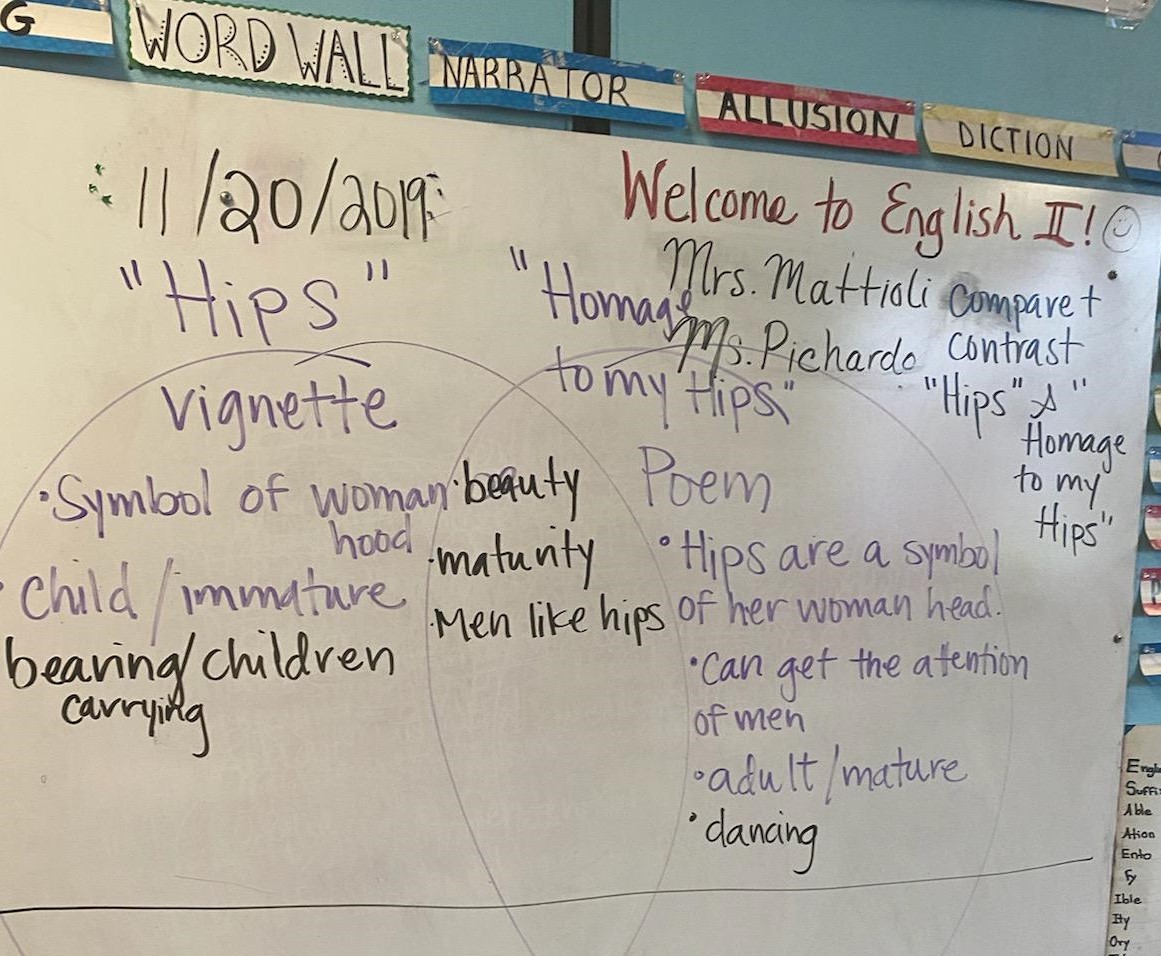 G
WORD WALL
NARRATOR
ALLUSION
DICTION
11/20/2019
Welcome to English II!
Mrs. Mattioli
Ms. Pichardo
compare +
contrast
"Hips" & "
Homage
to my
Hips"
"Hips"
vignette
• Symbol of woman
hood
• Child / immature
bearing/children
carrying
• beauty
• maturity
• Men like hips
"Homage
to my Hips"
Poem
• Hips are a symbol
of her woman head.
• Can get the attention
of men
• adult/mature
• dancing
Suffi
Able
Ation
Fy
Ible
Ity
Ory